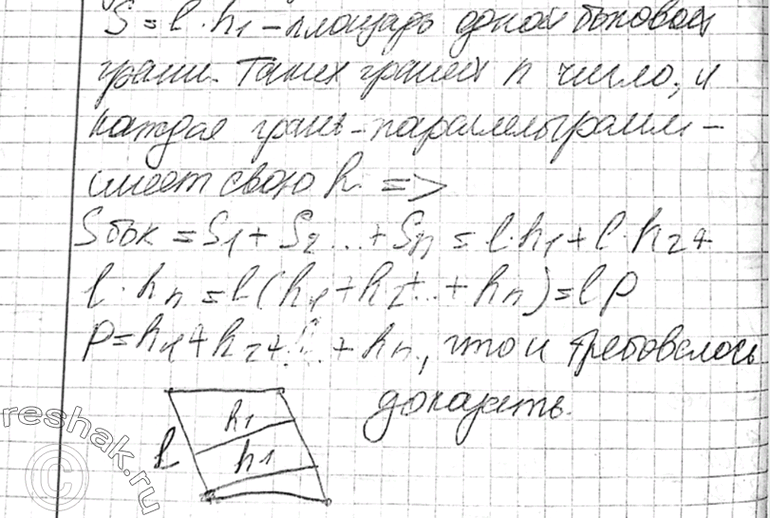 S = l · h1 - площадь одной боковой
грани. Таких граней n число, и
каждая грань - параллелограмм -
имеет свою h. =>
Sбок = S1 + S2 ... + Sn = l · h1 + l · h2 +
l · hn = l(h1 + h2 + ... + hn) = lP
P = h1 + h2 + ... + hn, что и требовалось
доказать.
h1
h1
l
reshak.ru
©